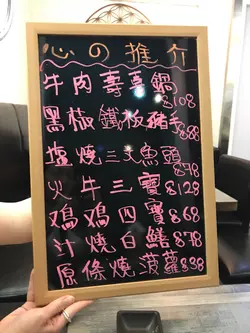 心の推介
牛肉壽喜鍋 $108
黑椒鐵板豬手 $88
塩燒三文魚頭 $78
火牛三寶 $128
鴉鴉四寶 $68
汁燒白鱔 $78
原條燒菠蘿 $38